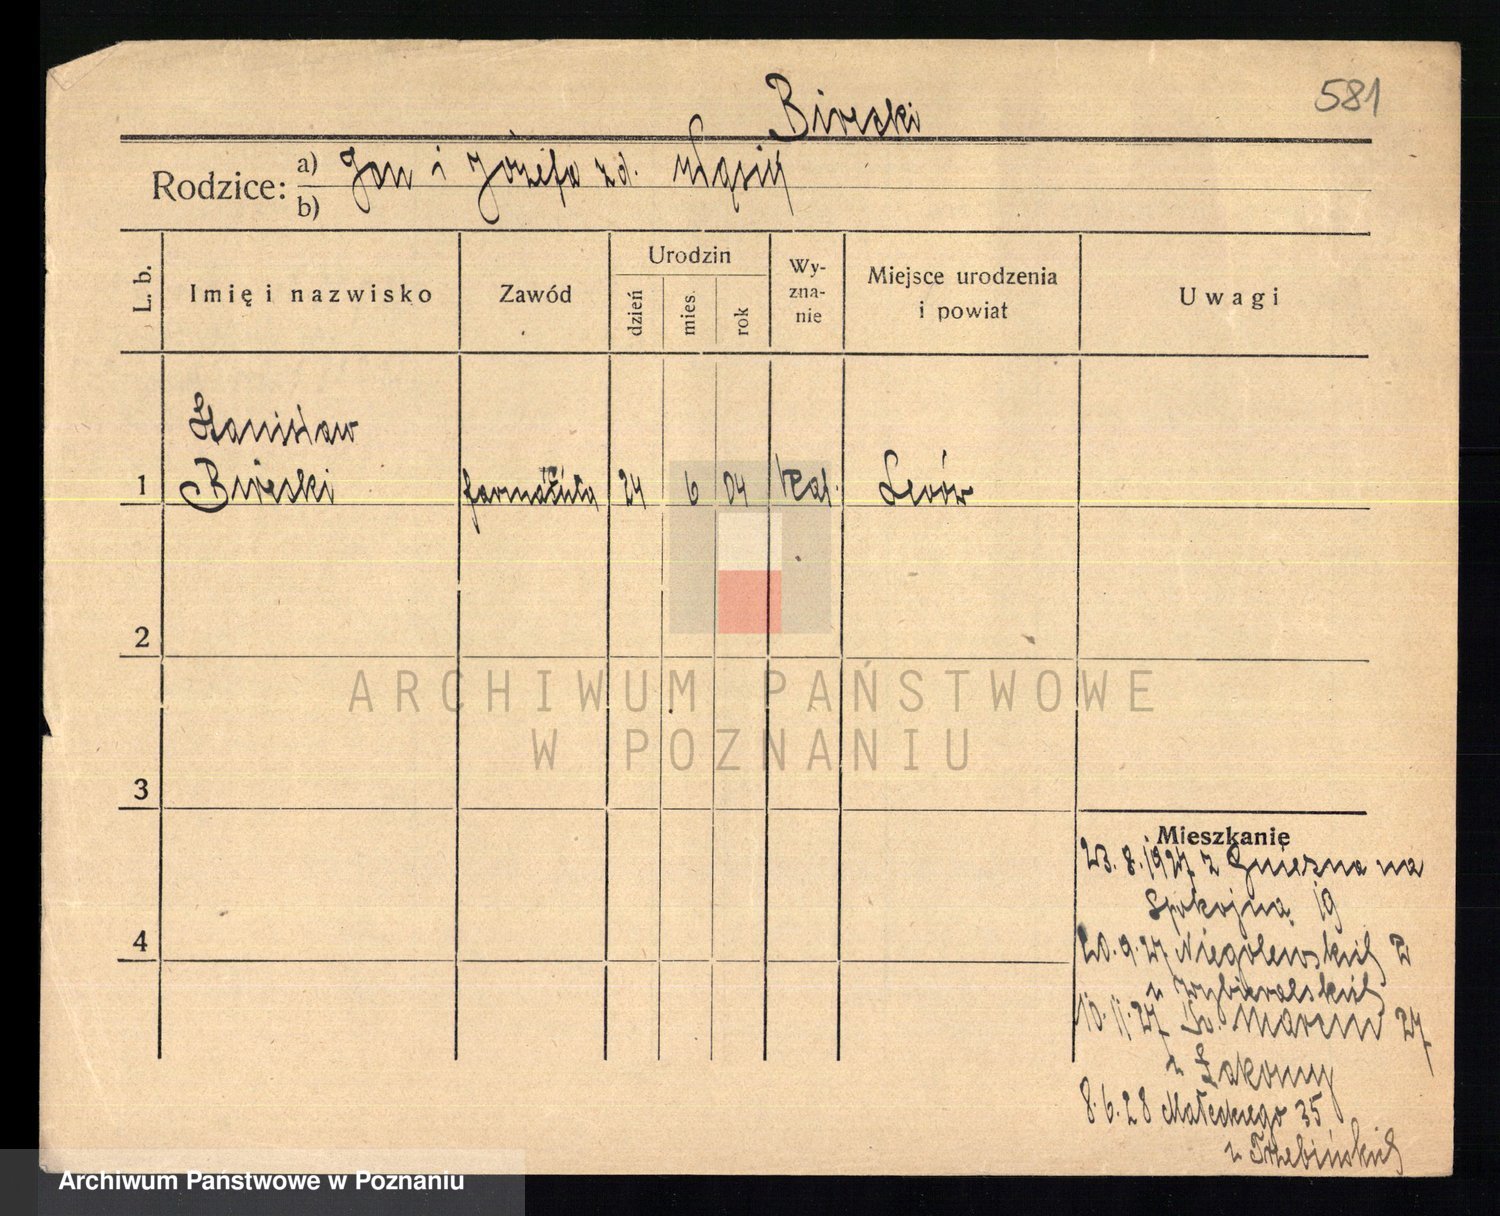 581
Bireski
Rodzice: a) Jan i Józefa zd.
b)
L. b.
Imię i nazwisko
Zawód
Urodzin
dzień
mies.
rok
Wy-
zna-
nie
Miejsce urodzenia
i powiat
Uwagi
Stanisław
1 Bireski 24 6 04 kat. Lwów
2
3
4
Mieszkanie
23.8.1927 z Gniezna na
Spokojną 19
20.9.27 Niegolewskich 2
10.11.27 Św. Marcin 27
u
8.6.28 Małeckiego 35
u Trzebińskich
ARCHIWUM PAŃSTWOWE
W POZNANIU
Archiwum Państwowe w Poznaniu